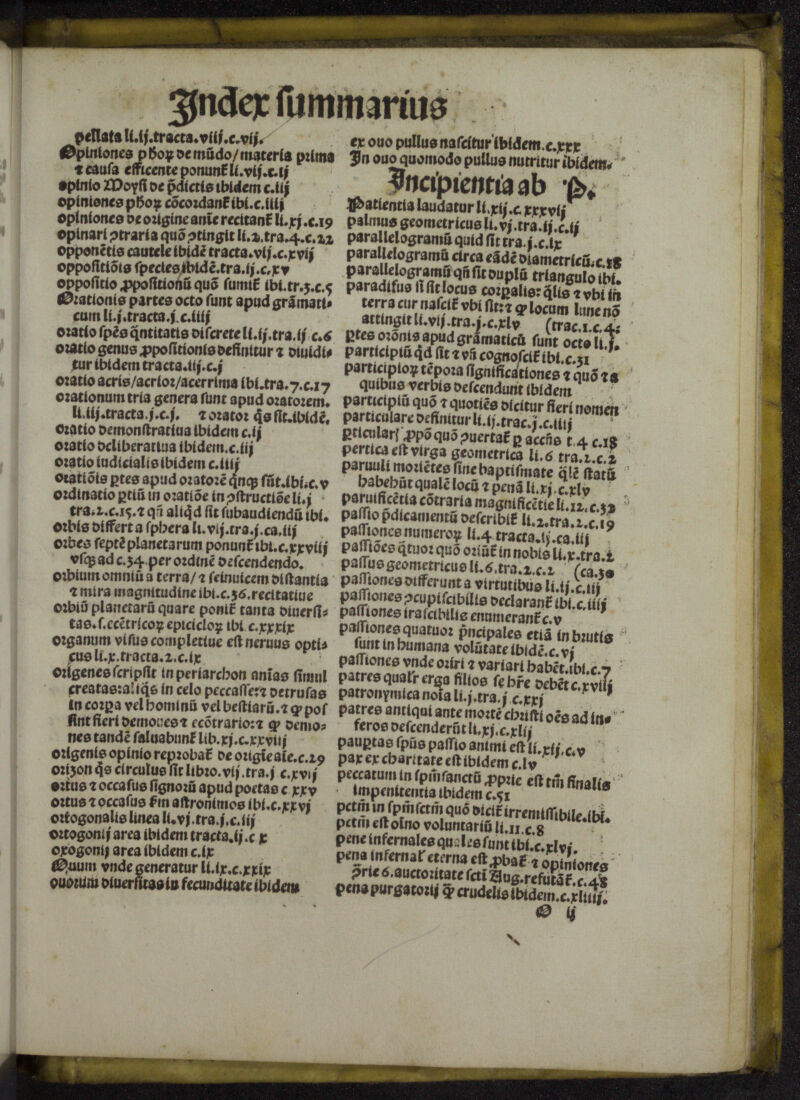 Index summarius
pellata li.ij.tracta.viij.c.vij.
Opiniones pħoꝝ de mũdo/materia prima
⁊ causa efficente ponunt᷑ li.vij.c.ij
opinio Moysi de p̄dictis ibidem c.iij
opiniones pħoꝝ cõcordant᷑ ibi.c.iiij
opiniones de origine anīe recitant᷑ li.xj.c.19
opinari ꝯtraria quõ ꝯtingit li.2.tra.4.c.22
opponẽtis cautele ibidẽ tracta.vij.c.xvij
oppositiõis species ibidẽ.tra.ij.c.xv
oppositio ꝓpositionũ quõ sumit᷑ ibi.tr.3.c.5
Orationis partes octo sunt apud grãmati⸗
cum li.j.tracta.j.c.iiij
oratio spẽs q̃ntitatis discrete li.ij.tra.ij c.6
oratio genus ꝓpositionis definitur ⁊ diuidi⸗
tur ibidem tracta.iij.c.j
oratio acris/acrior/acerrima ibi.tra.7.c.17
orationum tria genera sunt apud oratorem.
li.iij.tracta.j.c.j. ⁊ orator q̇s sit.ibidẽ.
oratio demonstratiua ibidem c.ij
oratio deliberatiua ibidem.c.iij
oratio iudicialis ibidem c.iiij
oratiõis ꝑtes apud oratorẽ q̃nqꝫ sũt.ibi.c.v
ordinatio ꝑtiũ in oratiõe in ꝯstructiõe li.j
tra.2.c.15.⁊ qñ aliq̇d sit subaudiendũ ibi.
orbis differt a sphera li.vij.tra.j.ca.iij
orbes septẽ planetarum ponunt᷑ ibi.c.xxviij
vsqꝫ ad c.34.per ordinẽ descendendo.
orbium omniũ a terra/⁊ seinuicem distantia
⁊ mira magnitudine ibi.c.36.recitatiue
orbiũ planetarũ quare ponit᷑ tanta diuersi⸗
tas.s.ecẽtricoꝝ epicicloꝝ ibi c.xxxix
organum visus completiue est neruus opti⸗
cus li.x.tracta.2.c.ix
origenes scripsit in periarchon anīas simul
creatas:aliq̃s in celo peccasse:⁊ detrusas
in corpa vel hominũ vel bestiarũ.⁊ ꝙ pos
sint fieri demones⁊ ecõtrario:⁊ ꝙ demo⸗
nes tandẽ saluabunt᷑ lib.xj.c.xxviij
origenis opinio reprobat᷑ de origīe aīe.c.29
orizon q̇s circulus sit libro.vij.tra.j c.xvij
ortus ⁊ occasus signorũ apud poetas c xxv
ortus ⁊ occasus ẜm astronimos ibi.c.xxvj
ortogonalis linea li.vj.tra.j.c.iij
ortogonij area ibidem tracta.ij.c x
oxogonij area ibidem c.ix
Ouum vnde generatur li.ix.c.xxix
ouorum diuersitas in fecunditate ibidem
ex ouo pullus nascitur ibidem.c.xxx
In ouo quomodo pullus nutritur ibidem.
Incipientia ab P.
Patientia laudatur li.xij.c.xxxvij
palmus geometricus li.vj.tra.ij.c.ij
parallelogramũ quid sit tra.j.c.ix
parallelogramũ circa eãdẽ diametricũ.c.18
parallelogramũ qñ sit duplũ triangulo ibi.
paradisus si sit locus corꝑalis: q̃lis ⁊ vbi in
terra cur nascit᷑ vbi sit:⁊ ꝙ locum lune nõ
attingit li.vij.tra.j.c.xlv (trac.1.c.4.
ꝑtes orõnis apud grãmaticũ sunt octo li.j.
participiũ q̇d sit ⁊ vñ cognoscit᷑ ibi.c.31
participioꝝ tẽpora significationes ⁊ quõ ⁊ a
quibus verbis descendunt ibidem
participiũ quõ ⁊ quotiẽs dicitur fieri nomen
particulare definitur li.ij.trac.j.c.iiij
ꝑticularj ꝓpõ quõ ꝯuertat᷑ ꝑ accñs t.4 c.18
pertica est virga geometrica li.6 tra.2.c.2
paruuli moriẽtes sine baptismate q̃lẽ statũ
habebũt qualẽ locũ ⁊ penã li.xj.c.xlv
paruificẽtia cõtraria magnificẽtie li.12.c.32
passio p̄dicamentũ describit᷑ li.2.tra.2.c.19
passiones numeroꝝ li.4 tracta.ij.ca.iij
passiões q̃tuor quõ oriũt᷑ in nobis li.x.tra.2
passus geometricus li.6.tra.2.c.2 (ca.30
passiones differunt a virtutibus li.ij.c.iij
passiones ꝯcupiscibilis declarant᷑ ibi.c.iiij
passiones irascibilis enumerant᷑ c.v
passiones quatuor p̄ncipales etiã in brutis
sunt in humana volũtate ibidẽ.c.vj
passiones vnde oriri ⁊ variari habẽt.ibi.c.7
patres qualr̄ erga filios se hr̄e debẽt c.xviij
patronymica nota li.j.tra.j c.xxj
patres antiqui ante mortẽ christi oẽs ad in⸗
feros descenderũt li.xj.c.xlij
pauꝑtas spũs passio animi est li.xij.c.v
pax ex charitate est ibidem c.lv
peccatum in spm̃sanctũ ꝓprie est tm̃ finalis
impenitentia ibidem c.51
pctm̃ in spm̃sctm̃ quõ dicit᷑ irremissibile.ibi.
pctm̃ est oĩno voluntariũ li.11.c.8
pene infernales quales sunt ibi.c.xlvj.
pena infernal᷑ eterna est.ꝓbat᷑ ⁊ opiniones
ꝯrie 6.auctoritate scti Aug.refutãt᷑.c.48
pena purgatorij ꝙ̃ crudelis ibidem.c.xliiij.
O ij